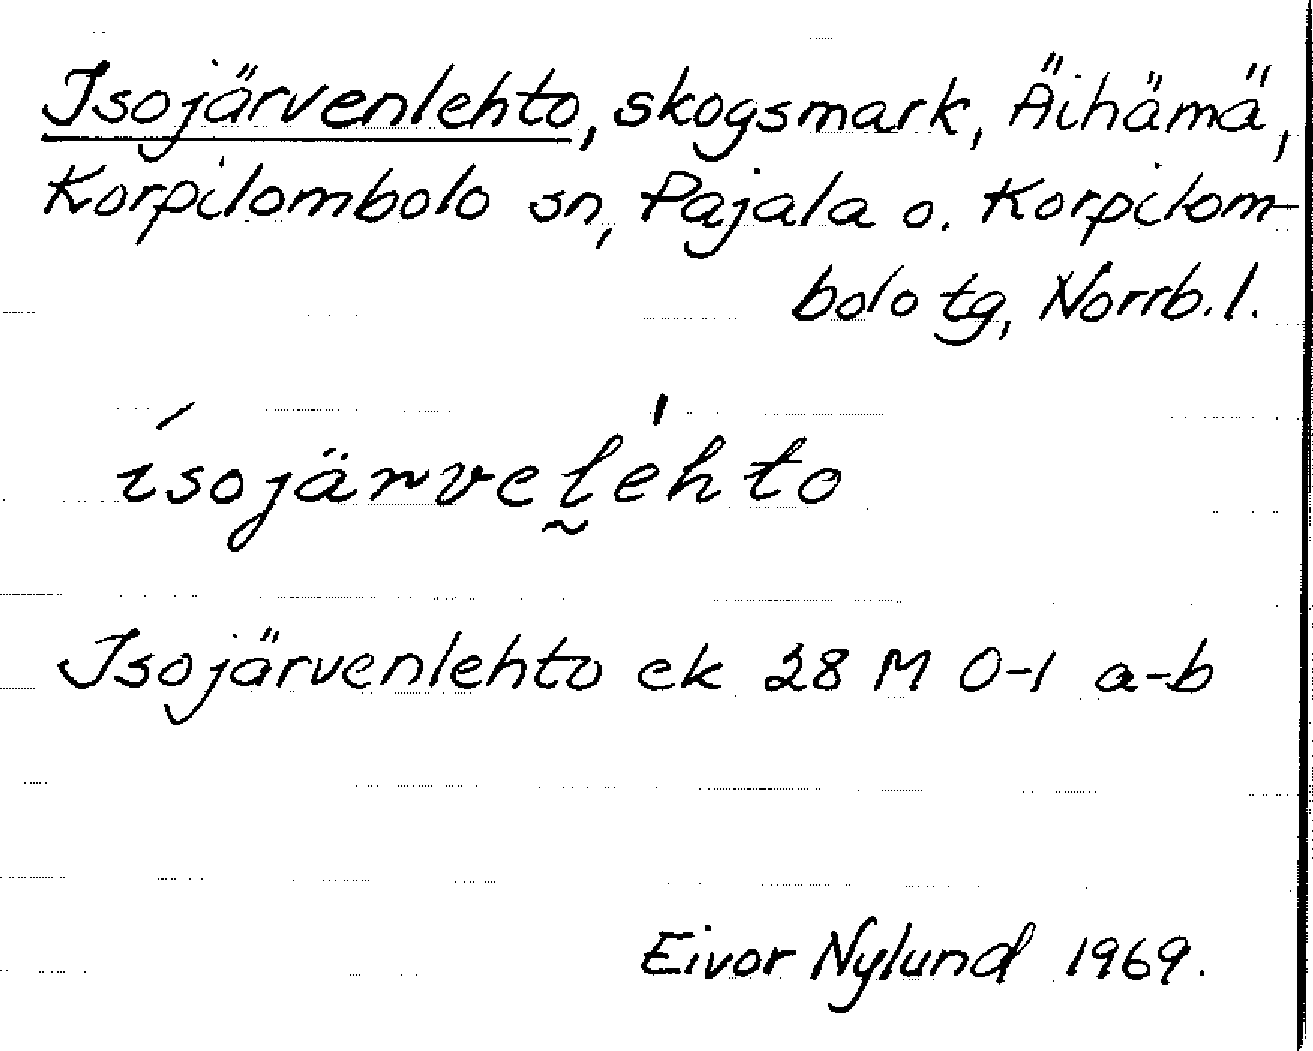 Isojärvenlehto, skogsmark, Äihämä,
Korpilombolo sn, Pajala o. Korpilom-
bolo tg, Norrb. l.
ísojärvel̰éhto
Isojärvenlehto ek 28 M 0-1 a-b
Eivor Nylund 1969.